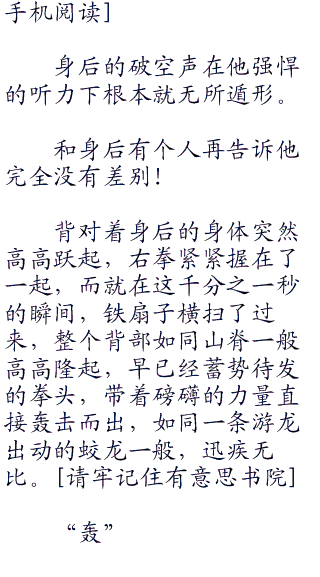 手机阅读]
身后的破空声在他强悍
的听力下根本就无所遁形。
和身后有个人再告诉他
完全没有差别！
背对着身后的身体突然
高高跃起，右拳紧紧握在了
一起，而就在这千分之一秒
的瞬间，铁扇子横扫了过
来，整个背部如同山脊一般
高高隆起，早已经蓄势待发
的拳头，带着磅礴的力量直
接轰击而出，如同一条游龙
出动的蛟龙一般，迅疾无
比。[请牢记住有意思书院]
“轰”